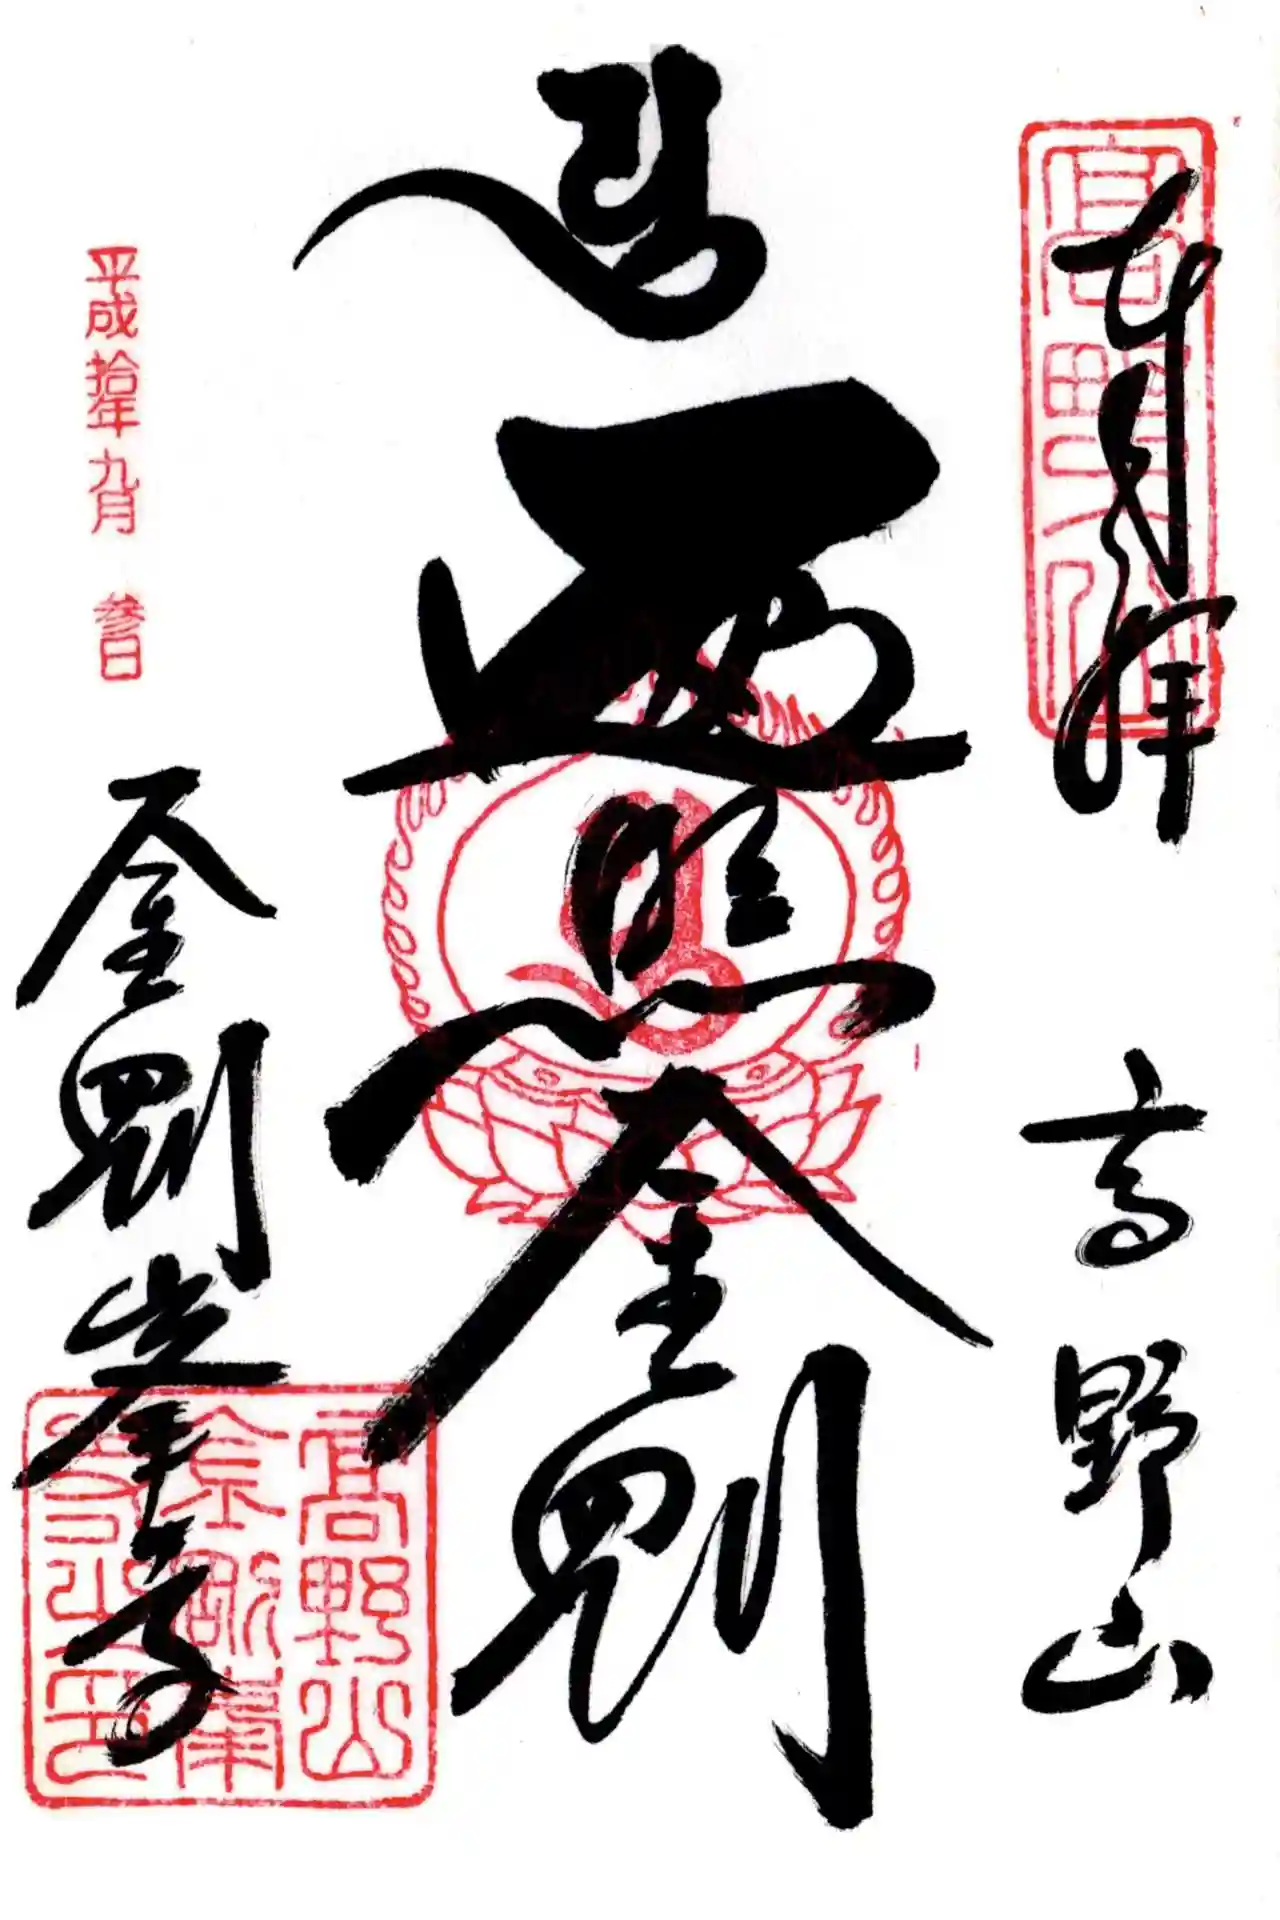 奉拝 高野山
遍照金剛
平成拾年九月 参日
金剛峯寺
高野山
金剛峯
寺之印